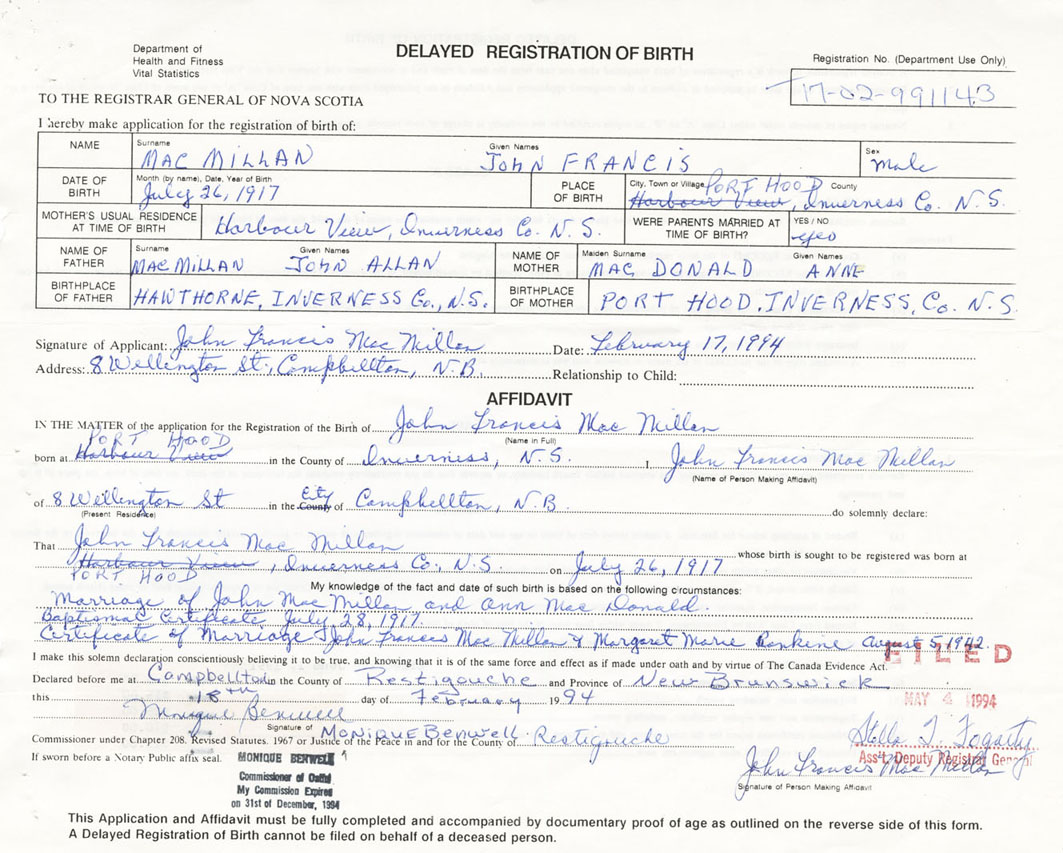 Department of
Health and Fitness
Vital Statistics
DELAYED REGISTRATION OF BIRTH
Registration No. (Department Use Only)
17-02-991143
TO THE REGISTRAR GENERAL OF NOVA SCOTIA
I hereby make application for the registration of birth of:
NAME Surname Given Names Sex
MAC MILLAN JOHN FRANCIS male
DATE OF BIRTH Month (by name), Date, Year of Birth PLACE OF BIRTH City, Town or Village PORT HOOD County
July 26, 1917 Harbour View, Inverness Co. N.S.
MOTHER'S USUAL RESIDENCE AT TIME OF BIRTH Harbour View, Inverness Co. N.S. WERE PARENTS MARRIED AT TIME OF BIRTH? YES / NO yes
NAME OF FATHER Surname Given Names NAME OF MOTHER Maiden Surname Given Names
MACMILLAN JOHN ALLAN MAC DONALD ANNE
BIRTHPLACE OF FATHER HAWTHORNE, INVERNESS Co., N.S. BIRTHPLACE OF MOTHER PORT HOOD, INVERNESS, Co. N.S.
Signature of Applicant: John Francis Mac Millan Date: February 17, 1994
Address: 8 Wellington St., Campbellton, N.B. Relationship to Child:
AFFIDAVIT
IN THE MATTER of the application for the Registration of the Birth of John Francis Mac Millan
(Name in Full)
PORT HOOD
born at Harbour View in the County of Inverness, N.S. I, John Francis Mac Millan
(Name of Person Making Affidavit)
of 8 Wellington St in the County City of Campbellton, N.B. do solemnly declare:
(Present Residence)
That John Francis Mac Millan whose birth is sought to be registered was born at
Harbour View, Inverness Co., N.S. on July 26, 1917
PORT HOOD
My knowledge of the fact and date of such birth is based on the following circumstances:
Marriage of John Mac Millan and Ann Mac Donald.
Baptismal Certificate July 28, 1917.
Certificate of Marriage John Francis Mac Millan & Margaret Marie Rankine August 5, 1942.
FILED
I make this solemn declaration conscientiously believing it to be true, and knowing that it is of the same force and effect as if made under oath and by virtue of The Canada Evidence Act.
Declared before me at Campbellton in the County of Restigouche and Province of New Brunswick
this 18th day of February 1994
MAY 4 1994
Monique Benwell
Signature of MONIQUE Benwell
Stella T. Fogarty
Commissioner under Chapter 208. Revised Statutes. 1967 or Justice of the Peace in and for the County of Restigouche
Ass't. Deputy Registrar General
If sworn before a Notary Public affix seal.
MONIQUE BENWELL
Commissioner of Oaths
My Commission Expires
on 31st of December, 1994
John Francis Mac Millan
Signature of Person Making Affidavit
This Application and Affidavit must be fully completed and accompanied by documentary proof of age as outlined on the reverse side of this form.
A Delayed Registration of Birth cannot be filed on behalf of a deceased person.